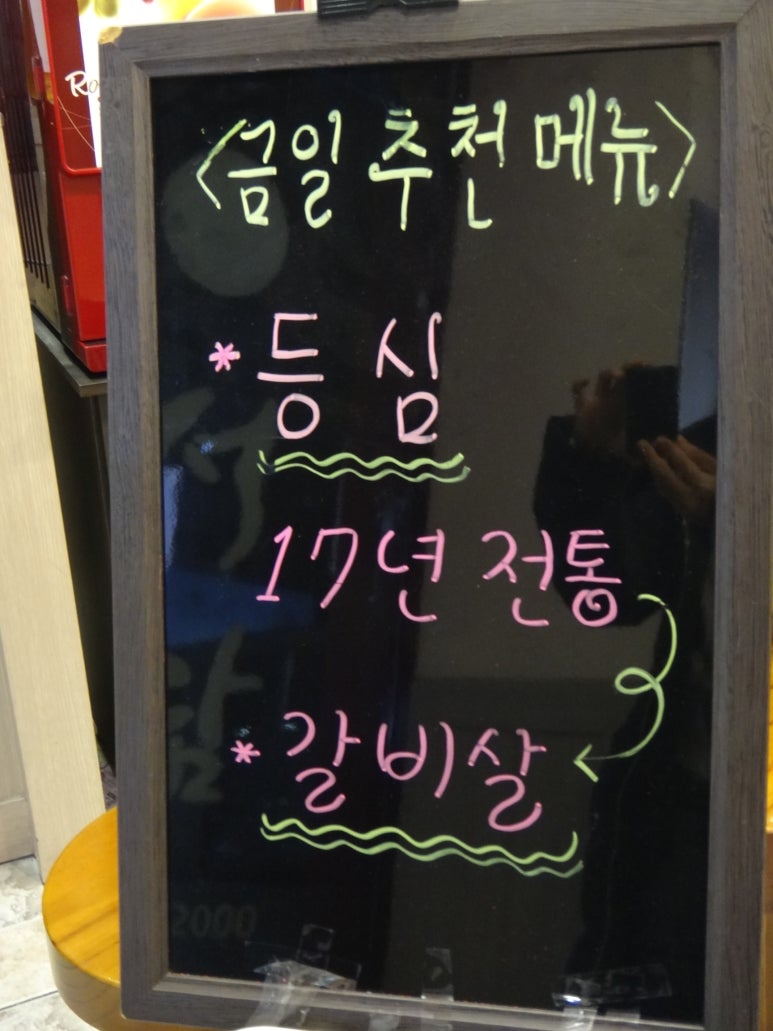 <금일 추천 메뉴>
* 등심
17년 전통
* 갈비살
2000